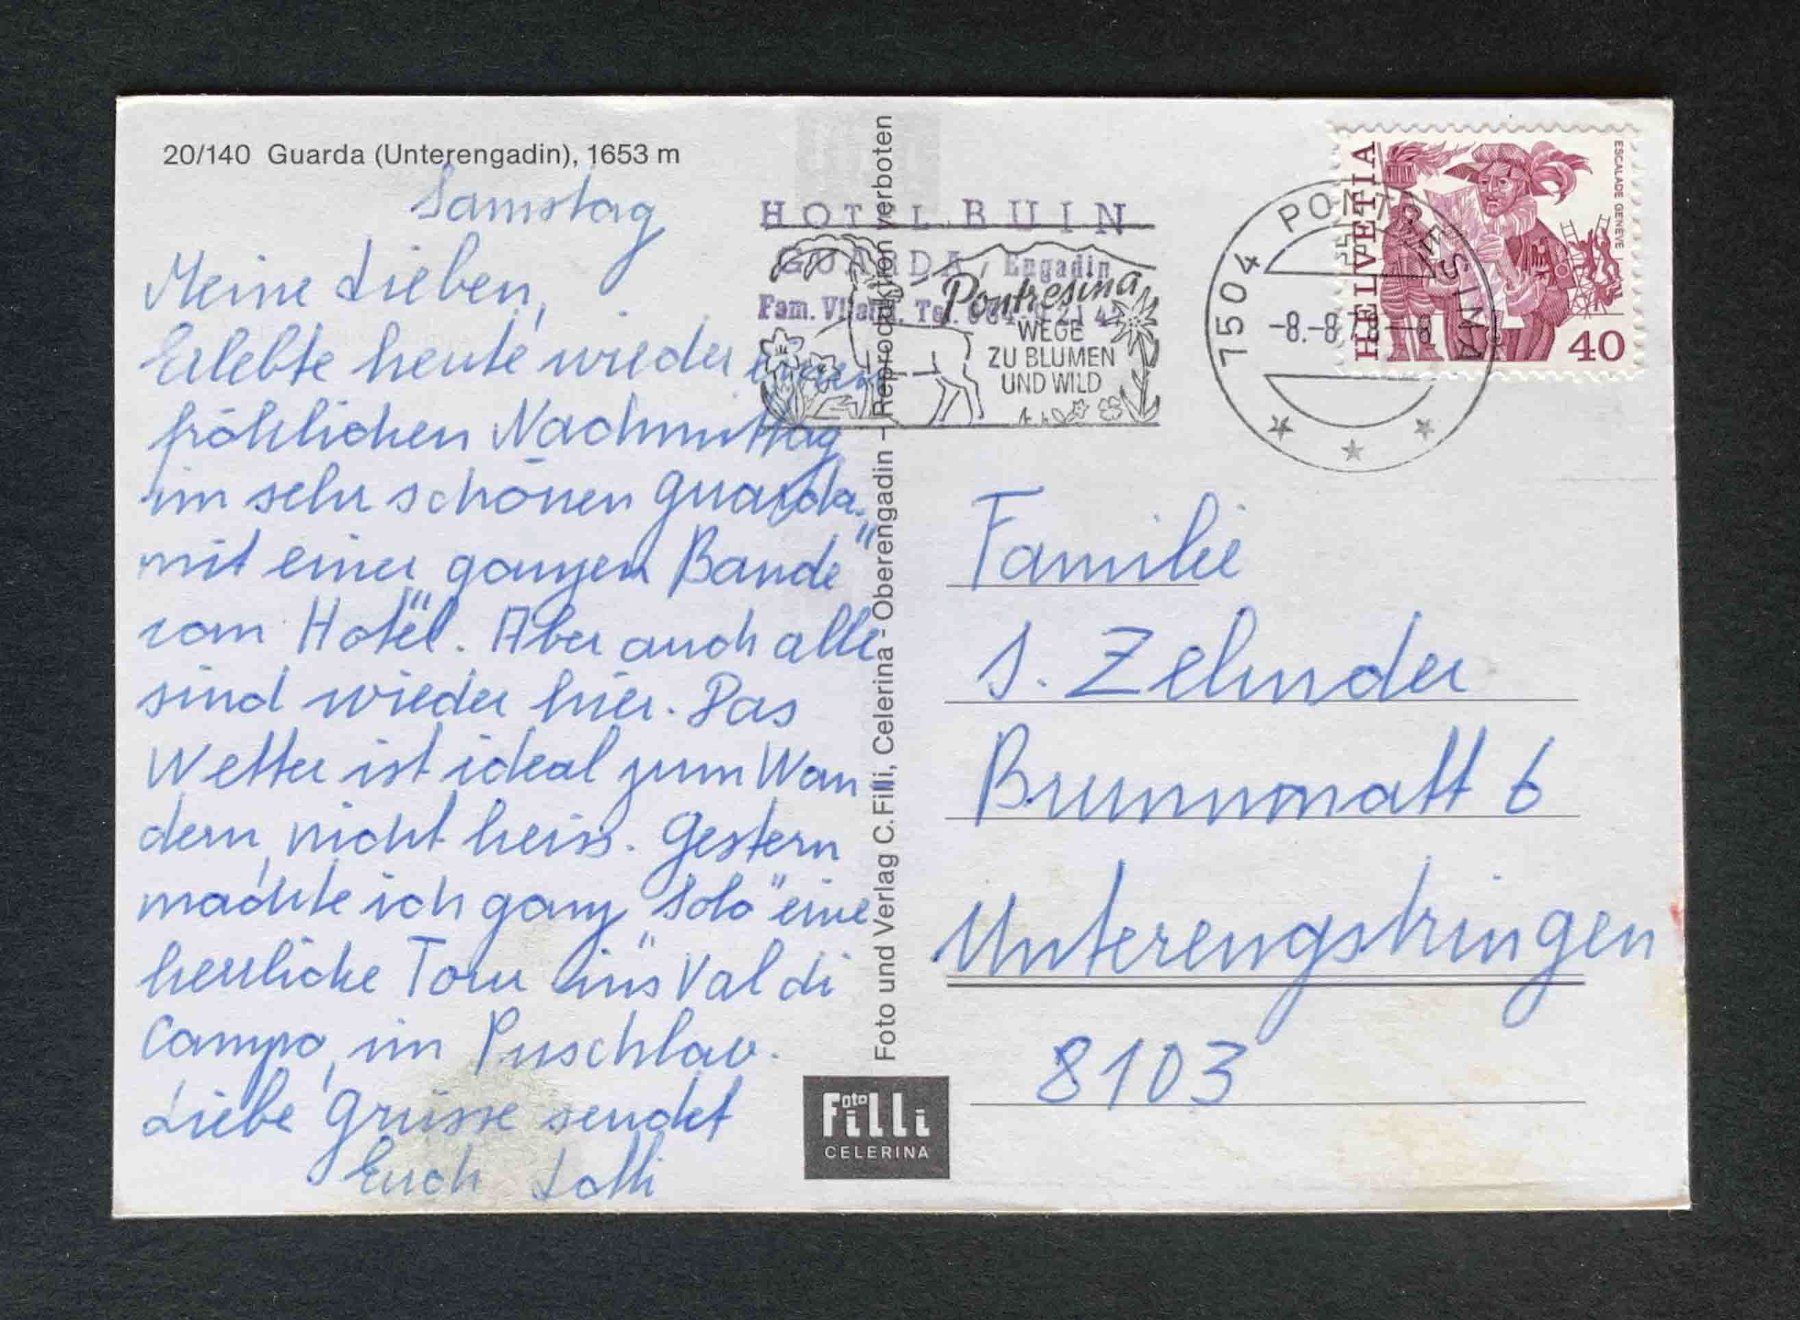 20/140 Guarda (Unterengadin), 1653 m
Samstag
Meine Lieben,
Erlebte heute wieder einen
fröhlichen Nachmittag
im sehr schönen Guarda.
mit einer ganzen "Bande"
vom Hotel. Aber auch alle
sind wieder hier. Das
Wetter ist ideal zum Wan
dern, nicht heiss. Gestern
machte ich ganz "Solo" eine
herrliche Tour ins Val di
Campo, im Puschlav.
Liebe Grüsse sendet
Euch Lolli
Foto und Verlag C. Filli, Celerina - Oberengadin - Reproduktion verboten
HOTEL BUIN
GUARDA / Engadin
Fam.
Pontresina
WEGE
ZU BLUMEN
UND WILD
7504 PONTRESINA
-8.-8.78--8
HELVETIA
ESCALADE GENÈVE
40
Familie
S. Zehnder
Brunnmatt 6
Unterengstringen
8103
Foto
Filli
CELERINA